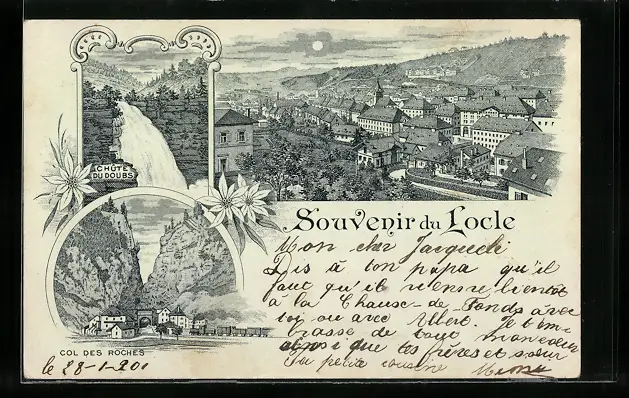 CHÛTE
DU DOUBS
Souvenir du Locle
Mon cher
Dis à ton papa qu'il
faut qu'il vienne bientôt
à la Chaux-de-Fonds avec
toi ou avec Albert. Je t'em-
brasse de tout mon cœur
ainsi que tes frères et sœur
Ta petite cousine
COL DES ROCHES
le 28-1-201